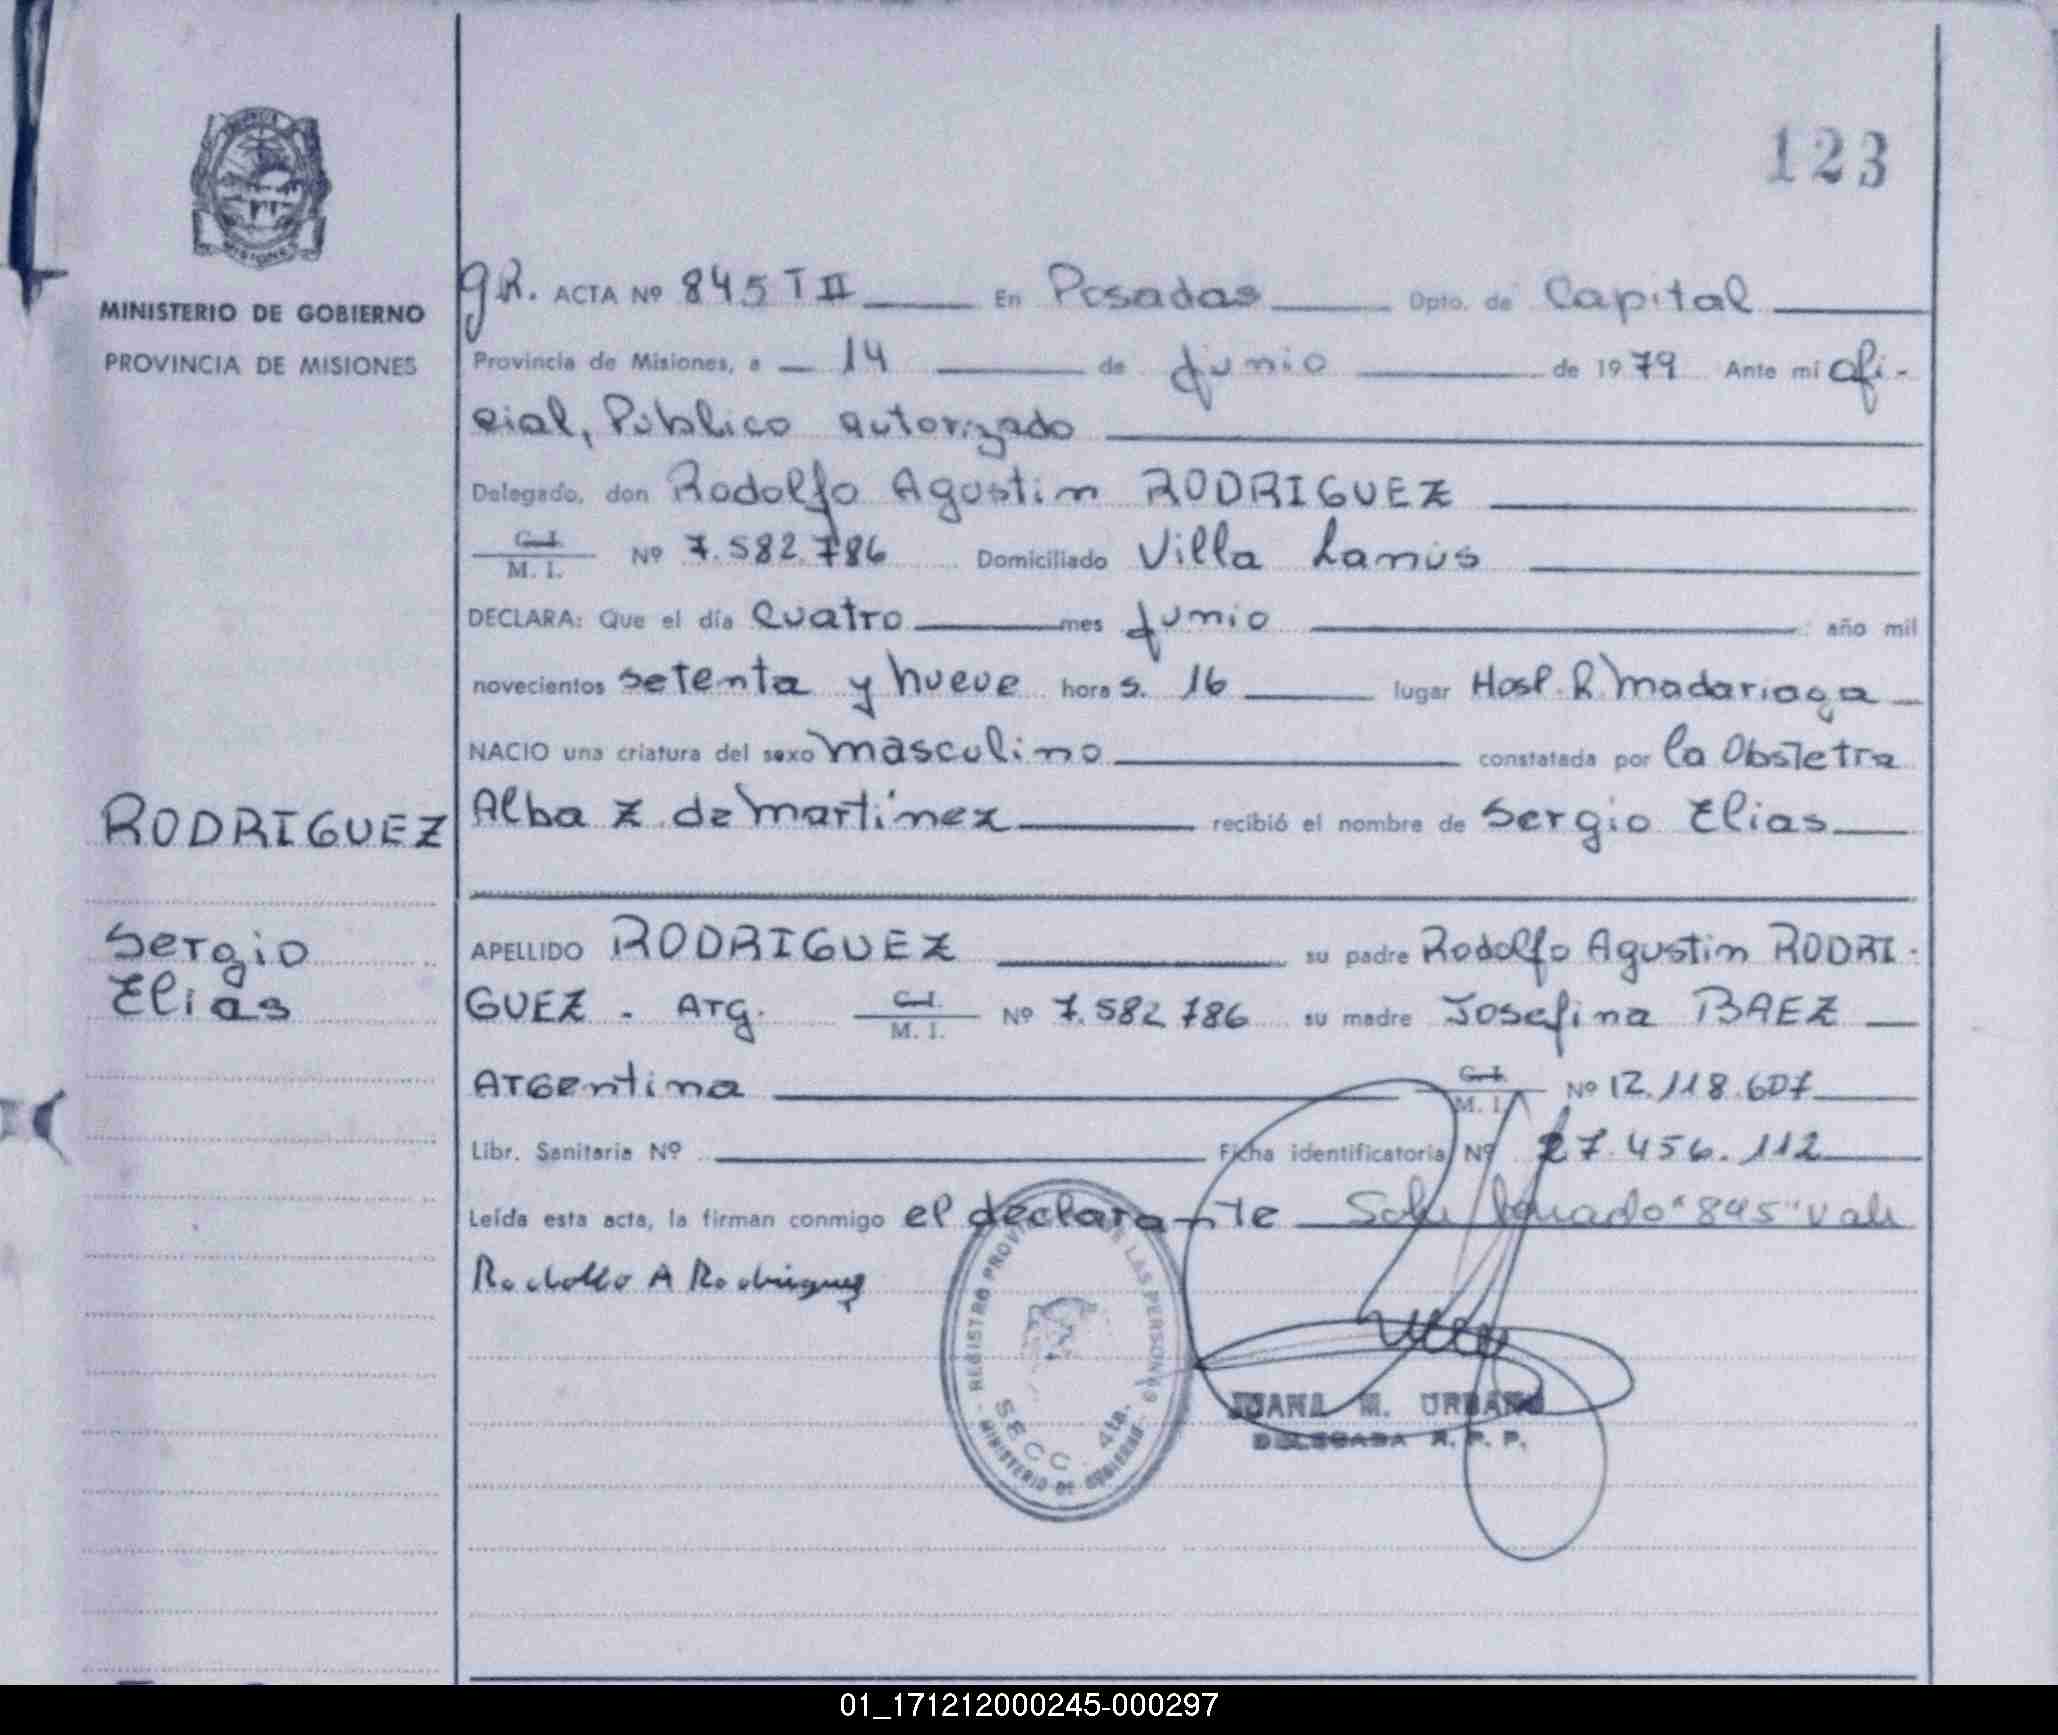 123
MINISTERIO DE GOBIERNO
PROVINCIA DE MISIONES
gR. ACTA Nº 845 T II En Posadas Dpto. de Capital
Provincia de Misiones, a 14 de junio de 1979 Ante mí ofi-
cial, Público autorizado
Delegado, don Rodolfo Agustin RODRIGUEZ
C.I.
M. I. Nº 7.582.786 Domiciliado Villa Lanús
DECLARA: Que el día cuatro mes junio año mil
novecientos setenta y nueve hora s. 16 lugar Hosp. R. Madariaga
NACIO una criatura del sexo masculino constatada por la Obstetra
Alba Z. de Martinez recibió el nombre de Sergio Elias
RODRIGUEZ
Sergio
Elias
APELLIDO RODRIGUEZ su padre Rodolfo Agustin RODRI-
GUEZ - Arg. C.I. M. I. Nº 7.582.786 su madre Josefina BAEZ
Argentina C.I. M. I. Nº 12.118.607
Libr. Sanitaria Nº Ficha identificatoria Nº 27.456.112
Leída esta acta, la firman conmigo el declarante "845" vale
Rodolfo A Rodriguez
REGISTRO PROV LAS PERSONAS
SECC. 4ta.
MINISTERIO DE GOBIERNO
JUANA M. URBANO
DELEGADA R. P. P.
01_171212000245-000297